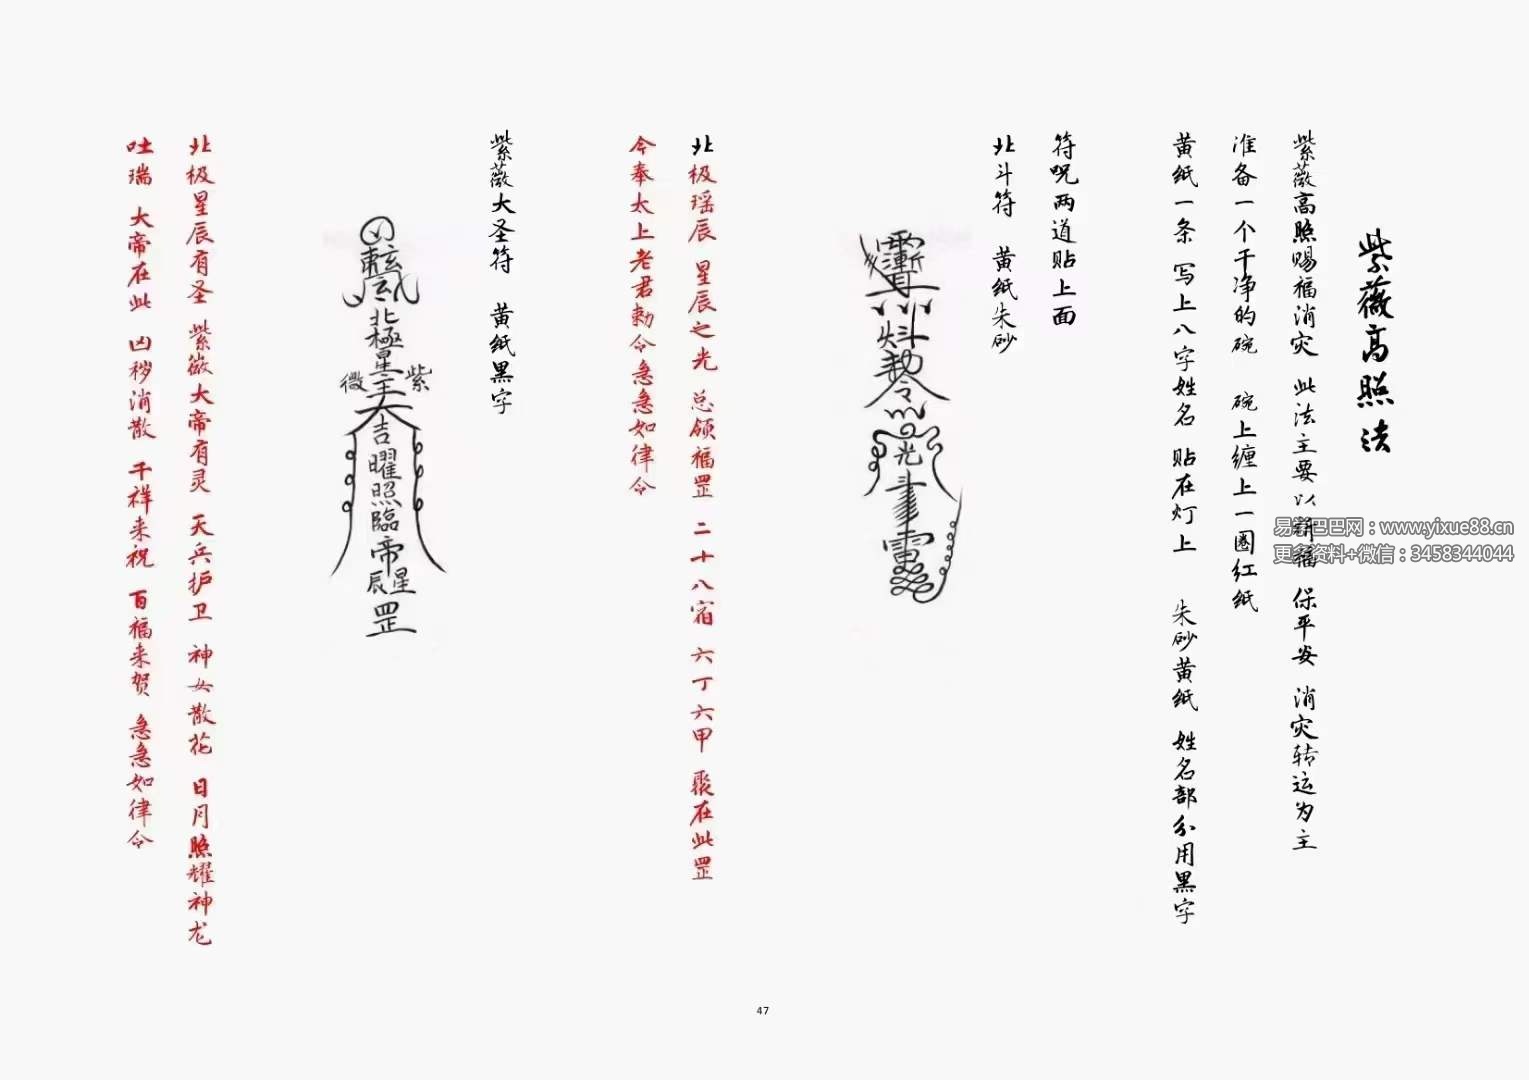 紫薇高照法
紫薇高照赐福消灾 此法主要以祈福 保平安 消灾转运为主
准备一个干净的碗 碗上缠上一圈红纸
黄纸一条 写上八字姓名 贴在灯上 朱砂黄纸 姓名部分用黑字
符咒两道贴上面
北斗符 黄纸朱砂
斗
勅令
光
北极瑶辰 星辰之光 总领福罡 二十八宿 六丁六甲 聚在此罡
今奉太上老君勅令急急如律令
紫薇大圣符 黄纸黑字
北極星主
紫微
大
吉曜照臨帝
星辰
罡
北极星辰有圣 紫微大帝有灵 天兵护卫 神女散花 日月照耀神龙
吐瑞 大帝在此 凶秽消散 千祥来祝 百福来贺 急急如律令
易学巴巴网：www.yixue88.cn
更多资料+微信：3458344044
47